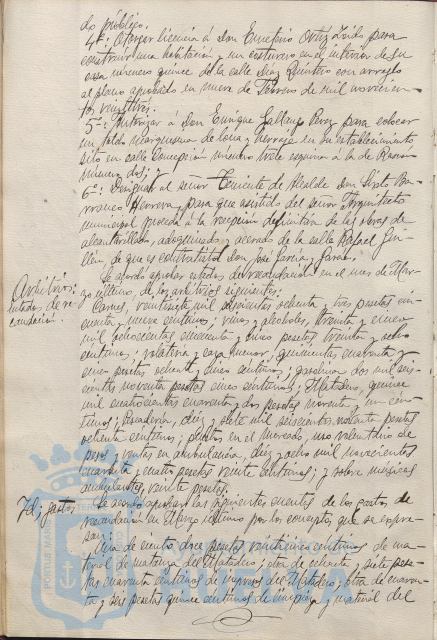 do público.
4º; Otorgar licencia á Don Emeterio Ortiz para
construir una habitación y un costurero en el interior de su
casa número quince de la calle Díaz Quintero con arreglo
al plano aprobado en nueve de Febrero de mil novecien-
tos veintitrés.
5º; Autorizar á Don Enrique Gallango Perez para colocar
un toldo marquesina de lona y herraje en su establecimiento
sito en calle Concepción número trete esquina á la de Rascon
número dos; y
6º; Designar al señor Teniente de Alcalde Don Sixto Ba-
rranco Herrera, para que asistido del señor Arquitecto
municipal proceda á la recepción definitiva de las obras de
alcantarillado, adoquinado y acerado de la calle Rafael Gui-
llén, de que es contratista Don José García García.
Arbitrios:
tados de re-
caudación:
Se acordó aprobar estados de recaudación en el mes de Mar-
zo último, de los arbitrios siguientes:
Carnes, veintisiete mil ochenta y tres pesetas cin-
cuenta y nueve céntimos; vinos y alcoholes, treinta y cinco
mil ochocientas cincuenta y cinco pesetas treinta y ocho
céntimos; volatería y caza menor, quinientas cuarenta y
cinco pesetas ochenta y cinco céntimos; gasolina dos mil seis-
cientas noventa pesetas cinco céntimos; Matadero, quince
mil cuatrocientas cuarenta y dos pesetas noventa y un cén-
timos; Pescadería, diez y siete mil seiscientas pesetas
ochenta céntimos; puestos en el mercado, uso voluntario de
pesas y ventas en ambulancia, diez y ocho mil novecientas
cuarenta y cuatro pesetas veinte céntimos; y sobre músicas
ambulantes, veinte pesetas.
Id; gastos,
Se acordó aprobar las siguientes cuentas de los gastos de
recaudación en Marzo último por los conceptos que se expre-
san:
Una de ciento doce pesetas veinticinco céntimos de ma-
terial de matanza del Matadero; otra de ochenta y siete pese-
tas cuarenta céntimos de impresos del Matadero; otra de cuaren-
ta y seis pesetas quince céntimos de limpieza y material del